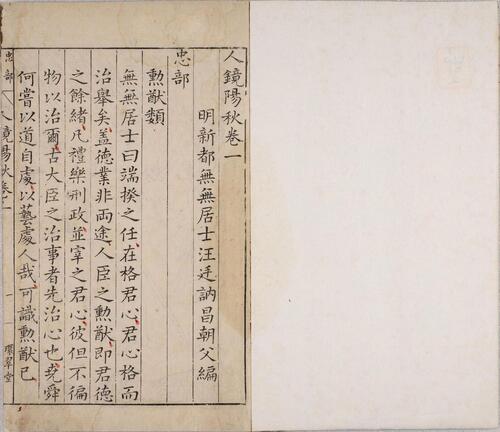 人鏡陽秋卷一
明新都無無居士汪廷訥昌朝父編
忠部
勲猷類
無無居士曰端揆之任在格君心君心格而
治舉矣蓋德業非兩途人臣之勲猷即君德
之餘緒凡禮樂刑政並宰之君心彼但不徧
物以治爾古大臣之治事者先治心也堯舜
何嘗以道自處以藝處人哉可識勲猷已
忠部 人鏡陽秋卷一 一 環翠堂